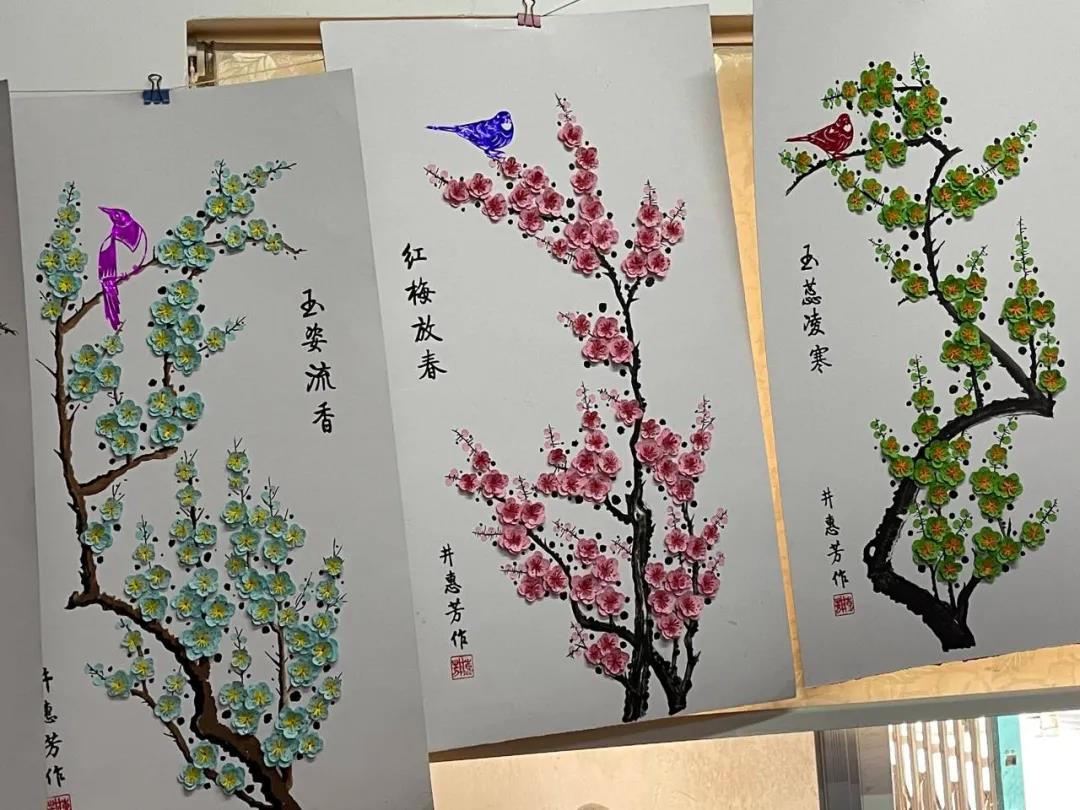 玉姿流香
井惠芳作
红梅放春
井惠芳作
玉蕊凌寒
井惠芳作